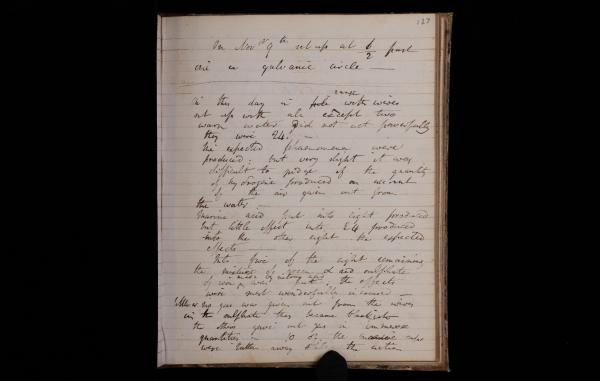 127
On Novr 9th set up at 6/2 past
one a galvanic circle —
on this day in with wires
set up with all except two
warm water did not act powerfully
they were 24. —
The expected phaenomena were
produced; but very slight it was
difficult to judge of the quantity
of hydrogene produced on account
of the air given out from
the water —
Marine acid put into eight produced
but little effect into 24 produced
into the other eight the expected
effects —
Into five of the eight remaining
the mixture of and sulphate
of iron was put the effects
were most wonderfully increased —
no gas was given out from the wires
in the sulphate they became blackish
the others gave out gas in immense
quantities in 10 of the cups
were eaten away the action